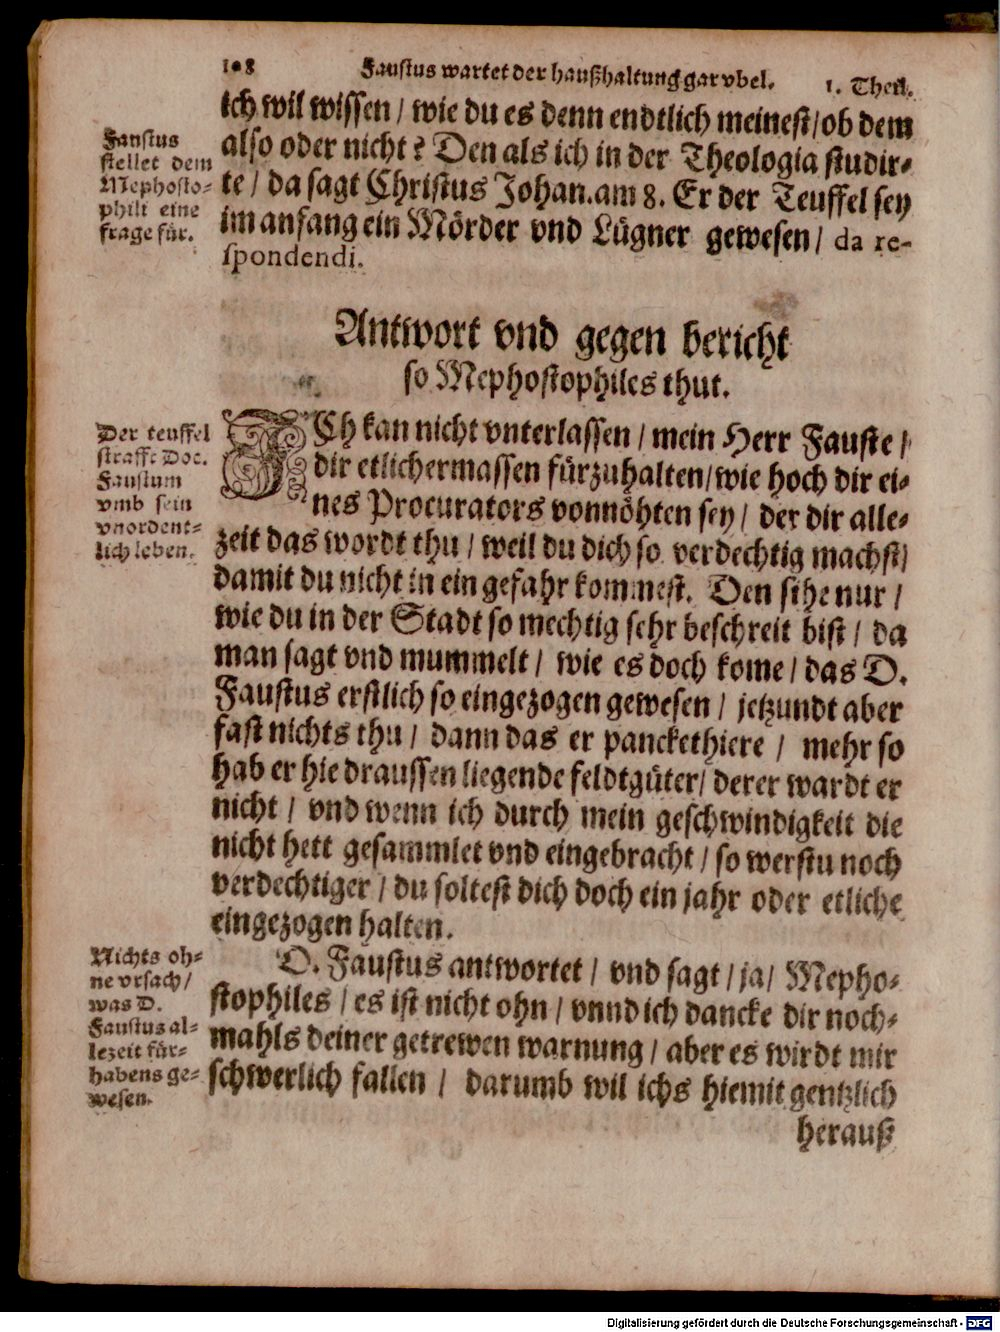 108 Faustus wartet der haußhaltung gar vbel. 1. Theil.
ich wil wissen / wie du es denn endtlich meinest / ob dem
also oder nicht? Den als ich in der Theologia studir-
te / da sagt Christus Johan. am 8. Er der Teuffel sey
im anfang ein Mörder vnd Lügner gewesen / da re-
spondendi.
Faustus
stellet dem
Mephosto-
phili eine
frage für.
Antwort vnd gegen bericht
so Mephostophiles thut.
Der teuffel
straffe Doc.
Faustum
vmb sein
vnordent-
lich leben.
ICh kan nicht vnterlassen / mein Herr Fauste /
dir etlichermassen fürzuhalten / wie hoch dir ei-
nes Procurators vonnöhten sey / der dir alle-
zeit das wordt thu / weil du dich so verdechtig machst /
damit du nicht in ein gefahr kommest. Den sihe nur /
wie du in der Stadt so mechtig sehr beschreit bist / da
man sagt vnd mummelt / wie es doch kome / das D.
Faustus erstlich so eingezogen gewesen / jetzundt aber
fast nichts thu / dann das er panckethiere / mehr so
hab er hie draussen liegende feldtgüter / derer wardt er
nicht / vnd wenn ich durch mein geschwindigkeit die
nicht hett gesammlet vnd eingebracht / so werstu noch
verdechtiger / du soltest dich doch ein jahr oder etliche
eingezogen halten.
Nichts oh-
ne vrsach /
was D.
Faustus al-
lezeit für-
habens ge-
wesen.
D. Faustus antwortet / vnd sagt / ja / Mepho-
stophiles / es ist nicht ohn / vnnd ich dancke dir noch-
mahls deiner getrewen warnung / aber es wirdt mir
schwerlich fallen / darumb wil ichs hiemit gentzlich
herauß
Digitalisierung gefördert durch die Deutsche Forschungsgemeinschaft - DFG